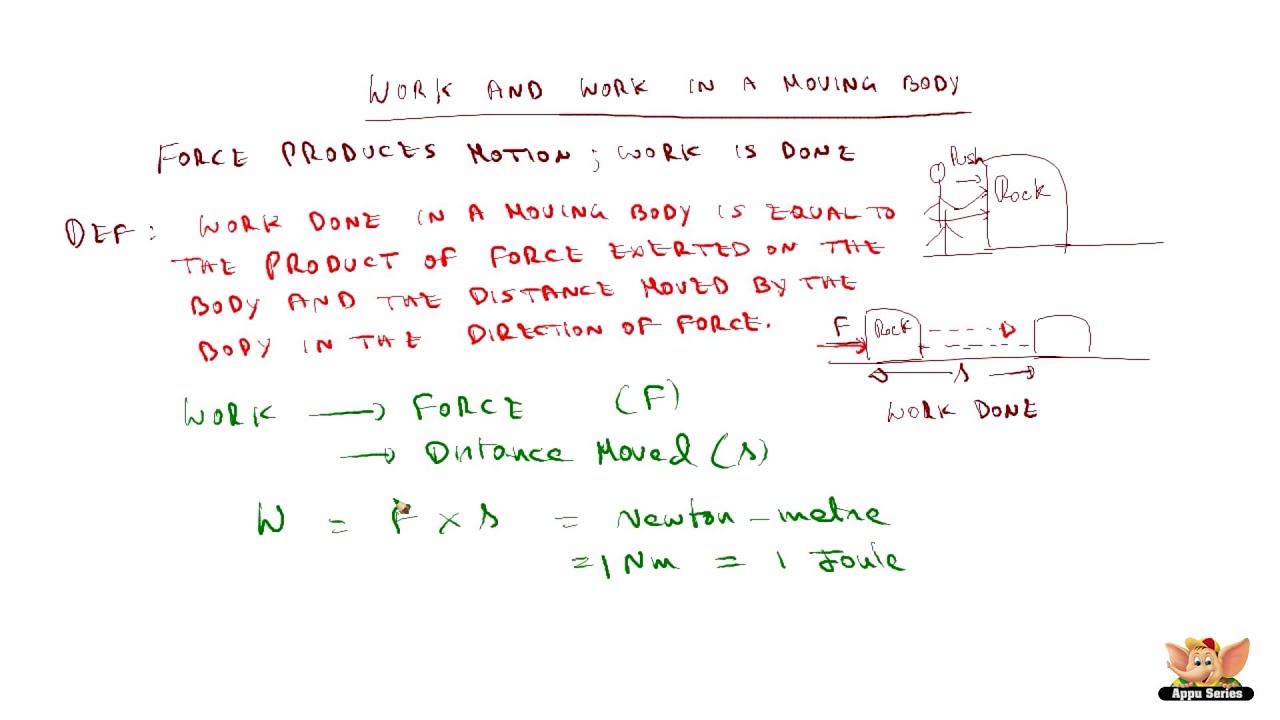 WORK AND WORK IN A MOVING BODY
FORCE PRODUCES MOTION; WORK IS DONE
DEF: WORK DONE IN A MOVING BODY IS EQUAL TO
THE PRODUCT OF FORCE EXERTED ON THE
BODY AND THE DISTANCE MOVED BY THE
BODY IN THE DIRECTION OF FORCE.
Push
Rock
F Rock
s
WORK DONE
WORK → FORCE (F)
→ Distance Moved (s)
W = F × s = Newton-metre
= 1 Nm = 1 Joule
Appu Series